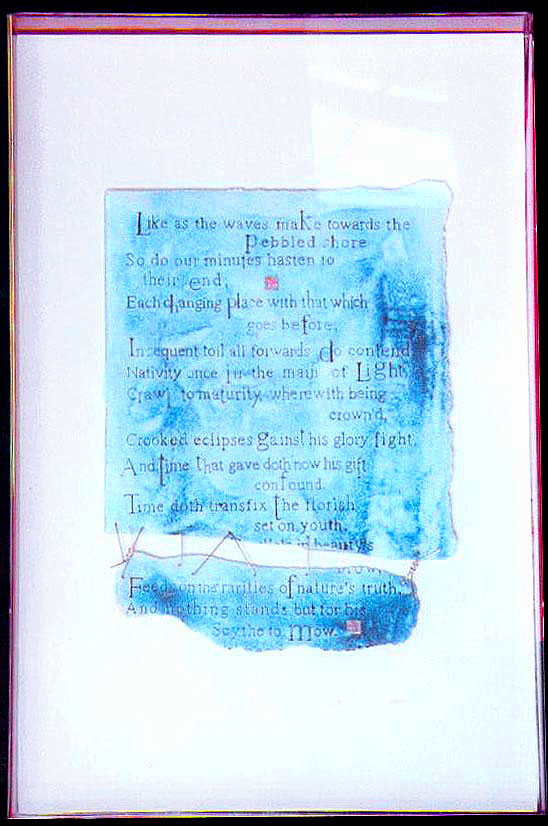 Like as the waves make towards the
pebbled shore
So do our minutes hasten to
their end;
Each changing place with that which
goes before,
In sequent toil all forwards do contend.
Nativity once in the main of Light,
Crawl to maturity, wherewith being
crown'd,
Crooked eclipses gainst his glory fight,
And time that gave doth now his gift
confound.
Time doth transfix the florish
set on youth,
beauty's
brow,
Feeds on the rarities of nature's truth,
And nothing stands but for his
Scythe to mow.